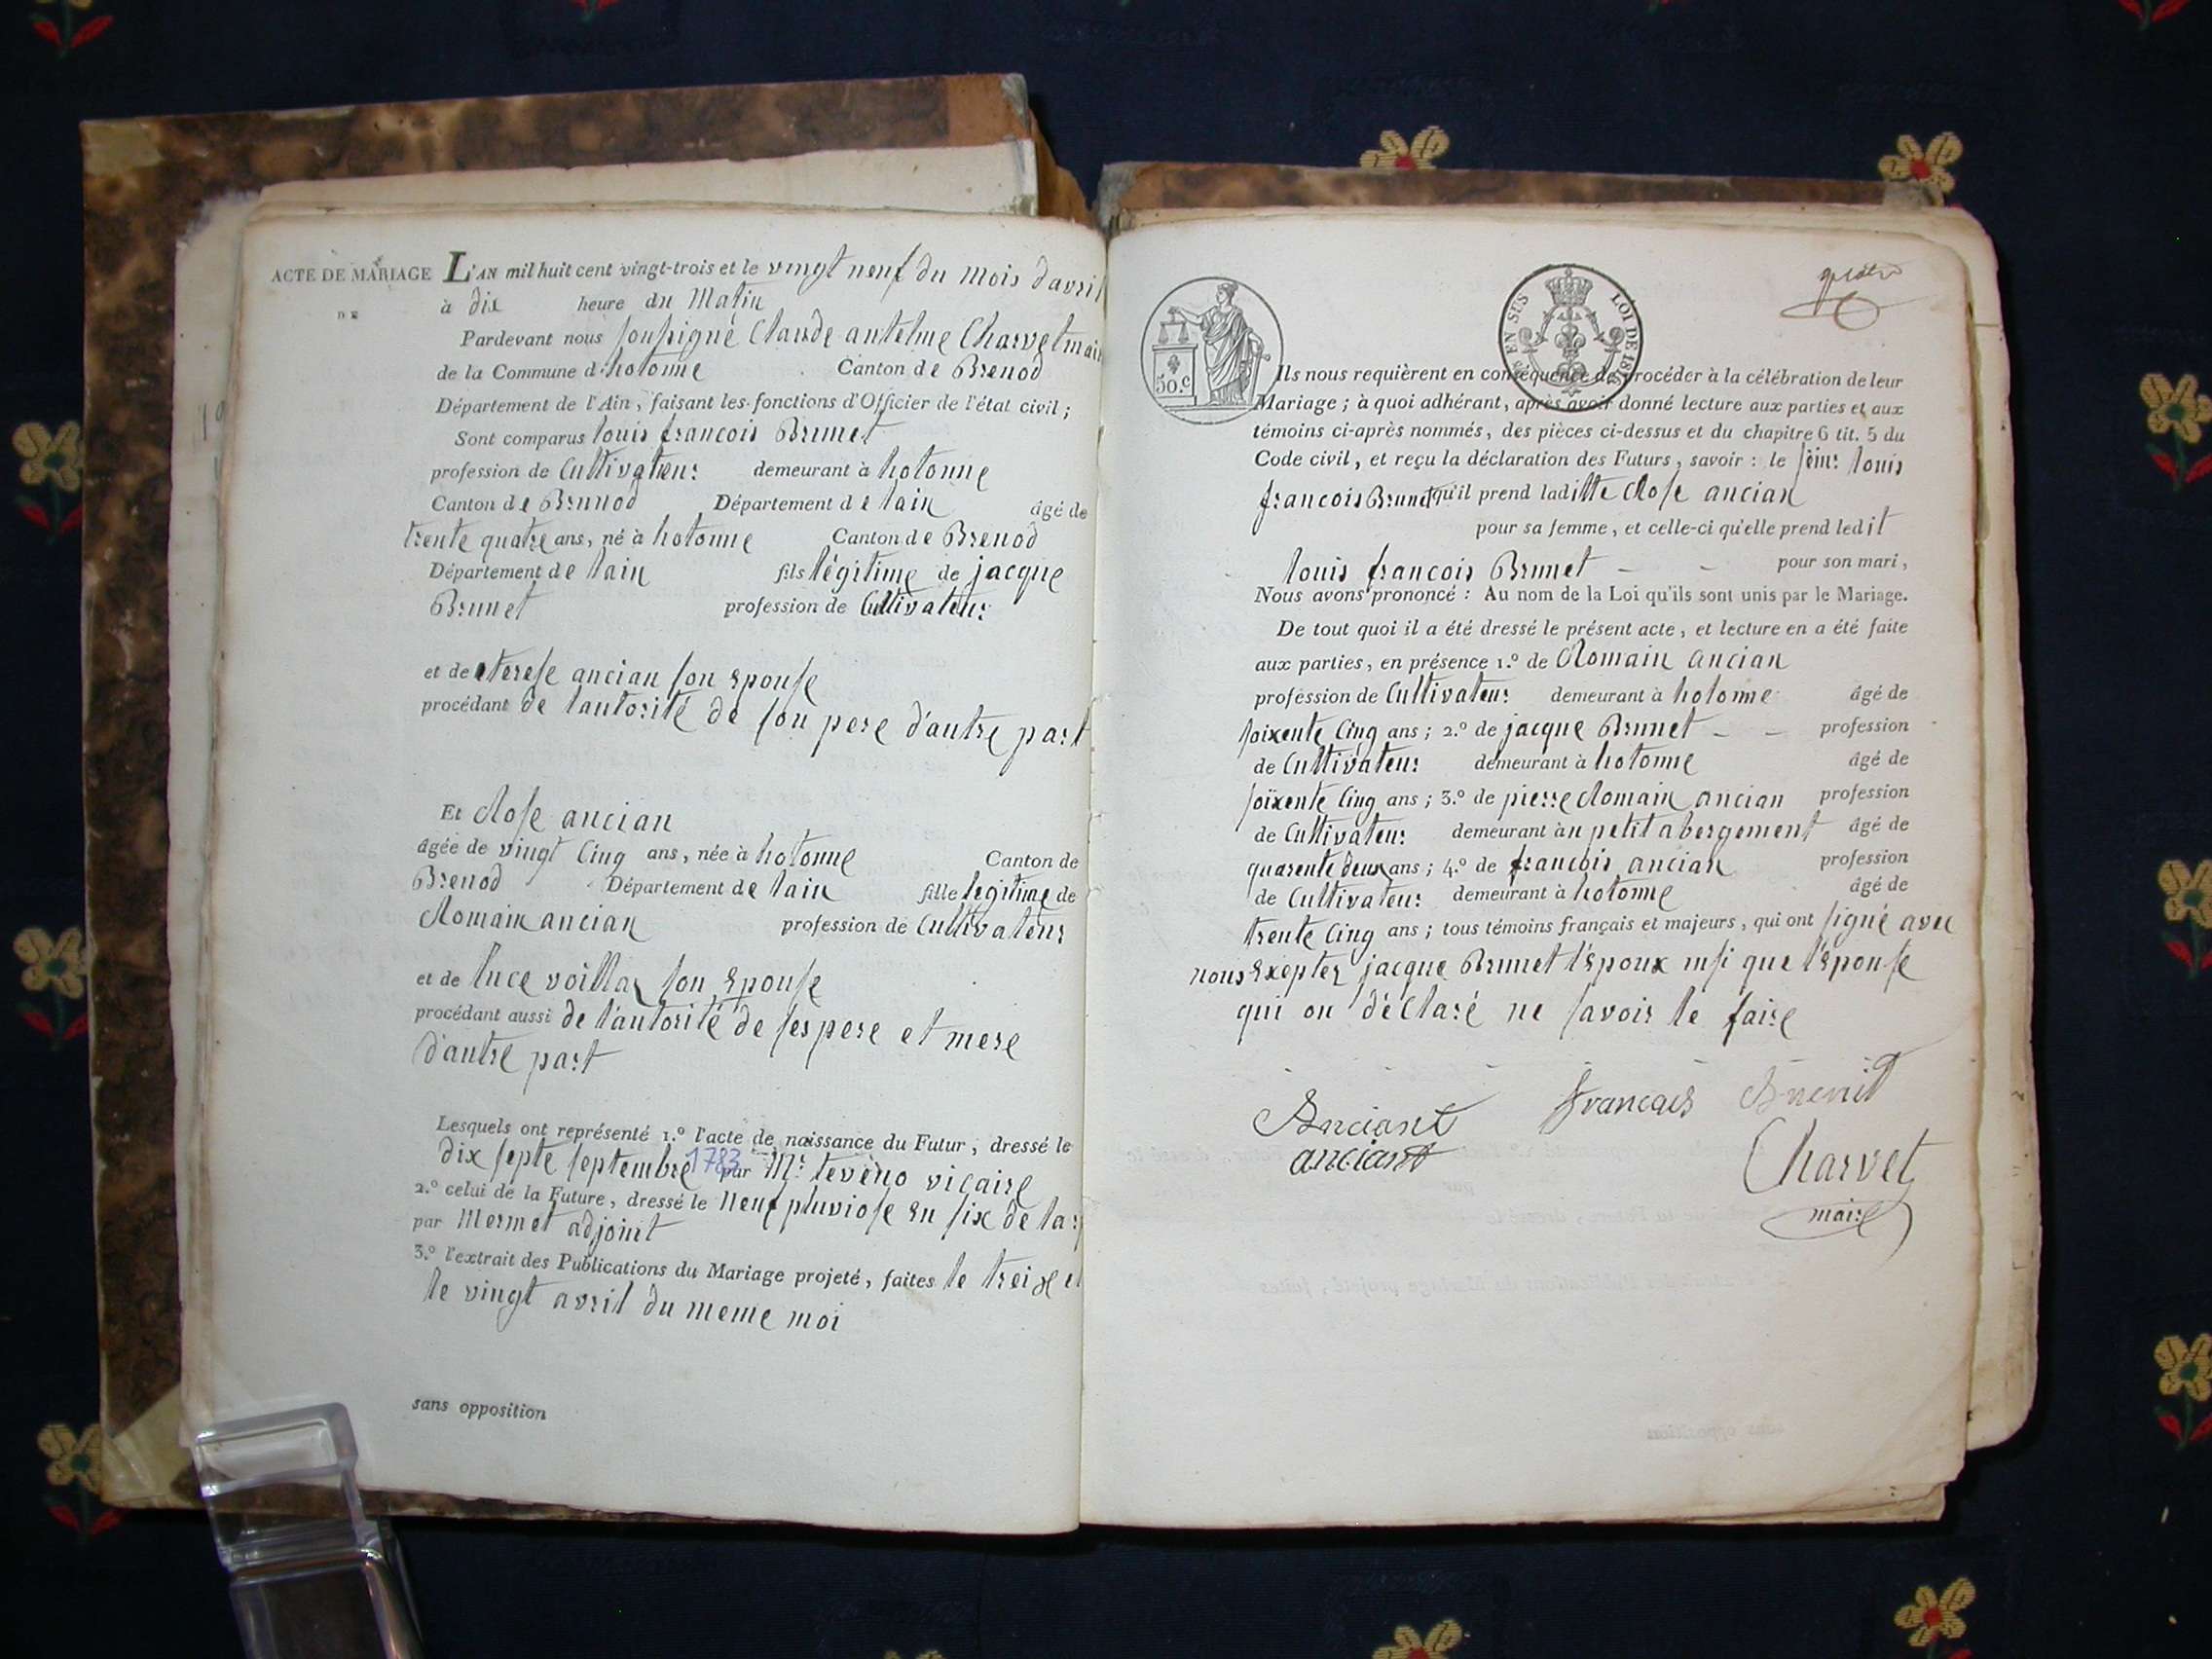 ACTE DE MARIAGE L'AN mil huit cent vingt-trois et le vingt neuf du mois davril
DE à dix heure du Matin
Pardevant nous soussigné Claude antelme Charvet mair
de la Commune d'hotonne Canton de Brenod
Département de l'Ain, faisant les fonctions d'Officier de l'état civil;
Sont comparus louis francois Brunet
profession de Cultivateur demeurant à hotonne
Canton de Brenod Département de lain âgé de
trente quatre ans, né à hotonne Canton de Brenod
Département de lain fils légitime de jacque
Brunet profession de Cultivateur
et de terese ancian son epouse
procédant de lautorité de son pere d'autre part
Et Rose ancian
âgée de vingt Cinq ans, née à hotonne Canton de
Brenod Département de lain fille legitime de
Romain ancian profession de Cultivateur
et de luce voillaz son epouse
procédant aussi de l'autorité de ses pere et mere
d'autre part
Lesquels ont représenté 1.º l'acte de naissance du Futur, dressé le
dix septe septembre 1783 par Mr teveno vicaire
2.º celui de la Future, dressé le neuf pluviose en six de la r
par Mermet adjoint
3.º l'extrait des Publications du Mariage projeté, faites le treize et
le vingt avril du meme moi
sans opposition
50.c
EN SUS LOI DE 1816
Ils nous requièrent en conséquence de procéder à la célébration de leur
Mariage; à quoi adhérant, après avoir donné lecture aux parties et aux
témoins ci-après nommés, des pièces ci-dessus et du chapitre 6 tit. 5 du
Code civil, et reçu la déclaration des Futurs, savoir: le sieur louis
francois Brunet qu'il prend laditte Rose ancian
pour sa femme, et celle-ci qu'elle prend ledit
louis francois Brunet - - pour son mari,
Nous avons prononcé: Au nom de la Loi qu'ils sont unis par le Mariage.
De tout quoi il a été dressé le présent acte, et lecture en a été faite
aux parties, en présence 1.º de Romain ancian
profession de Cultivateur demeurant à hotonne âgé de
soixente Cinq ans; 2.º de jacque Brunet - - profession
de Cultivateur demeurant à hotonne âgé de
soixente Cinq ans; 3.º de pierre Romain ancian profession
de Cultivateur demeurant àu petit abergement âgé de
quarente deux ans; 4.º de francois ancian profession
de Cultivateur demeurant à hotonne âgé de
trente Cinq ans; tous témoins français et majeurs, qui ont signé avec
nous exepter jacque Brunet l'epoux insi que l'epouse
qui on déClaré ne savoir le faire
Anciant francais
anciant Charvet
maire